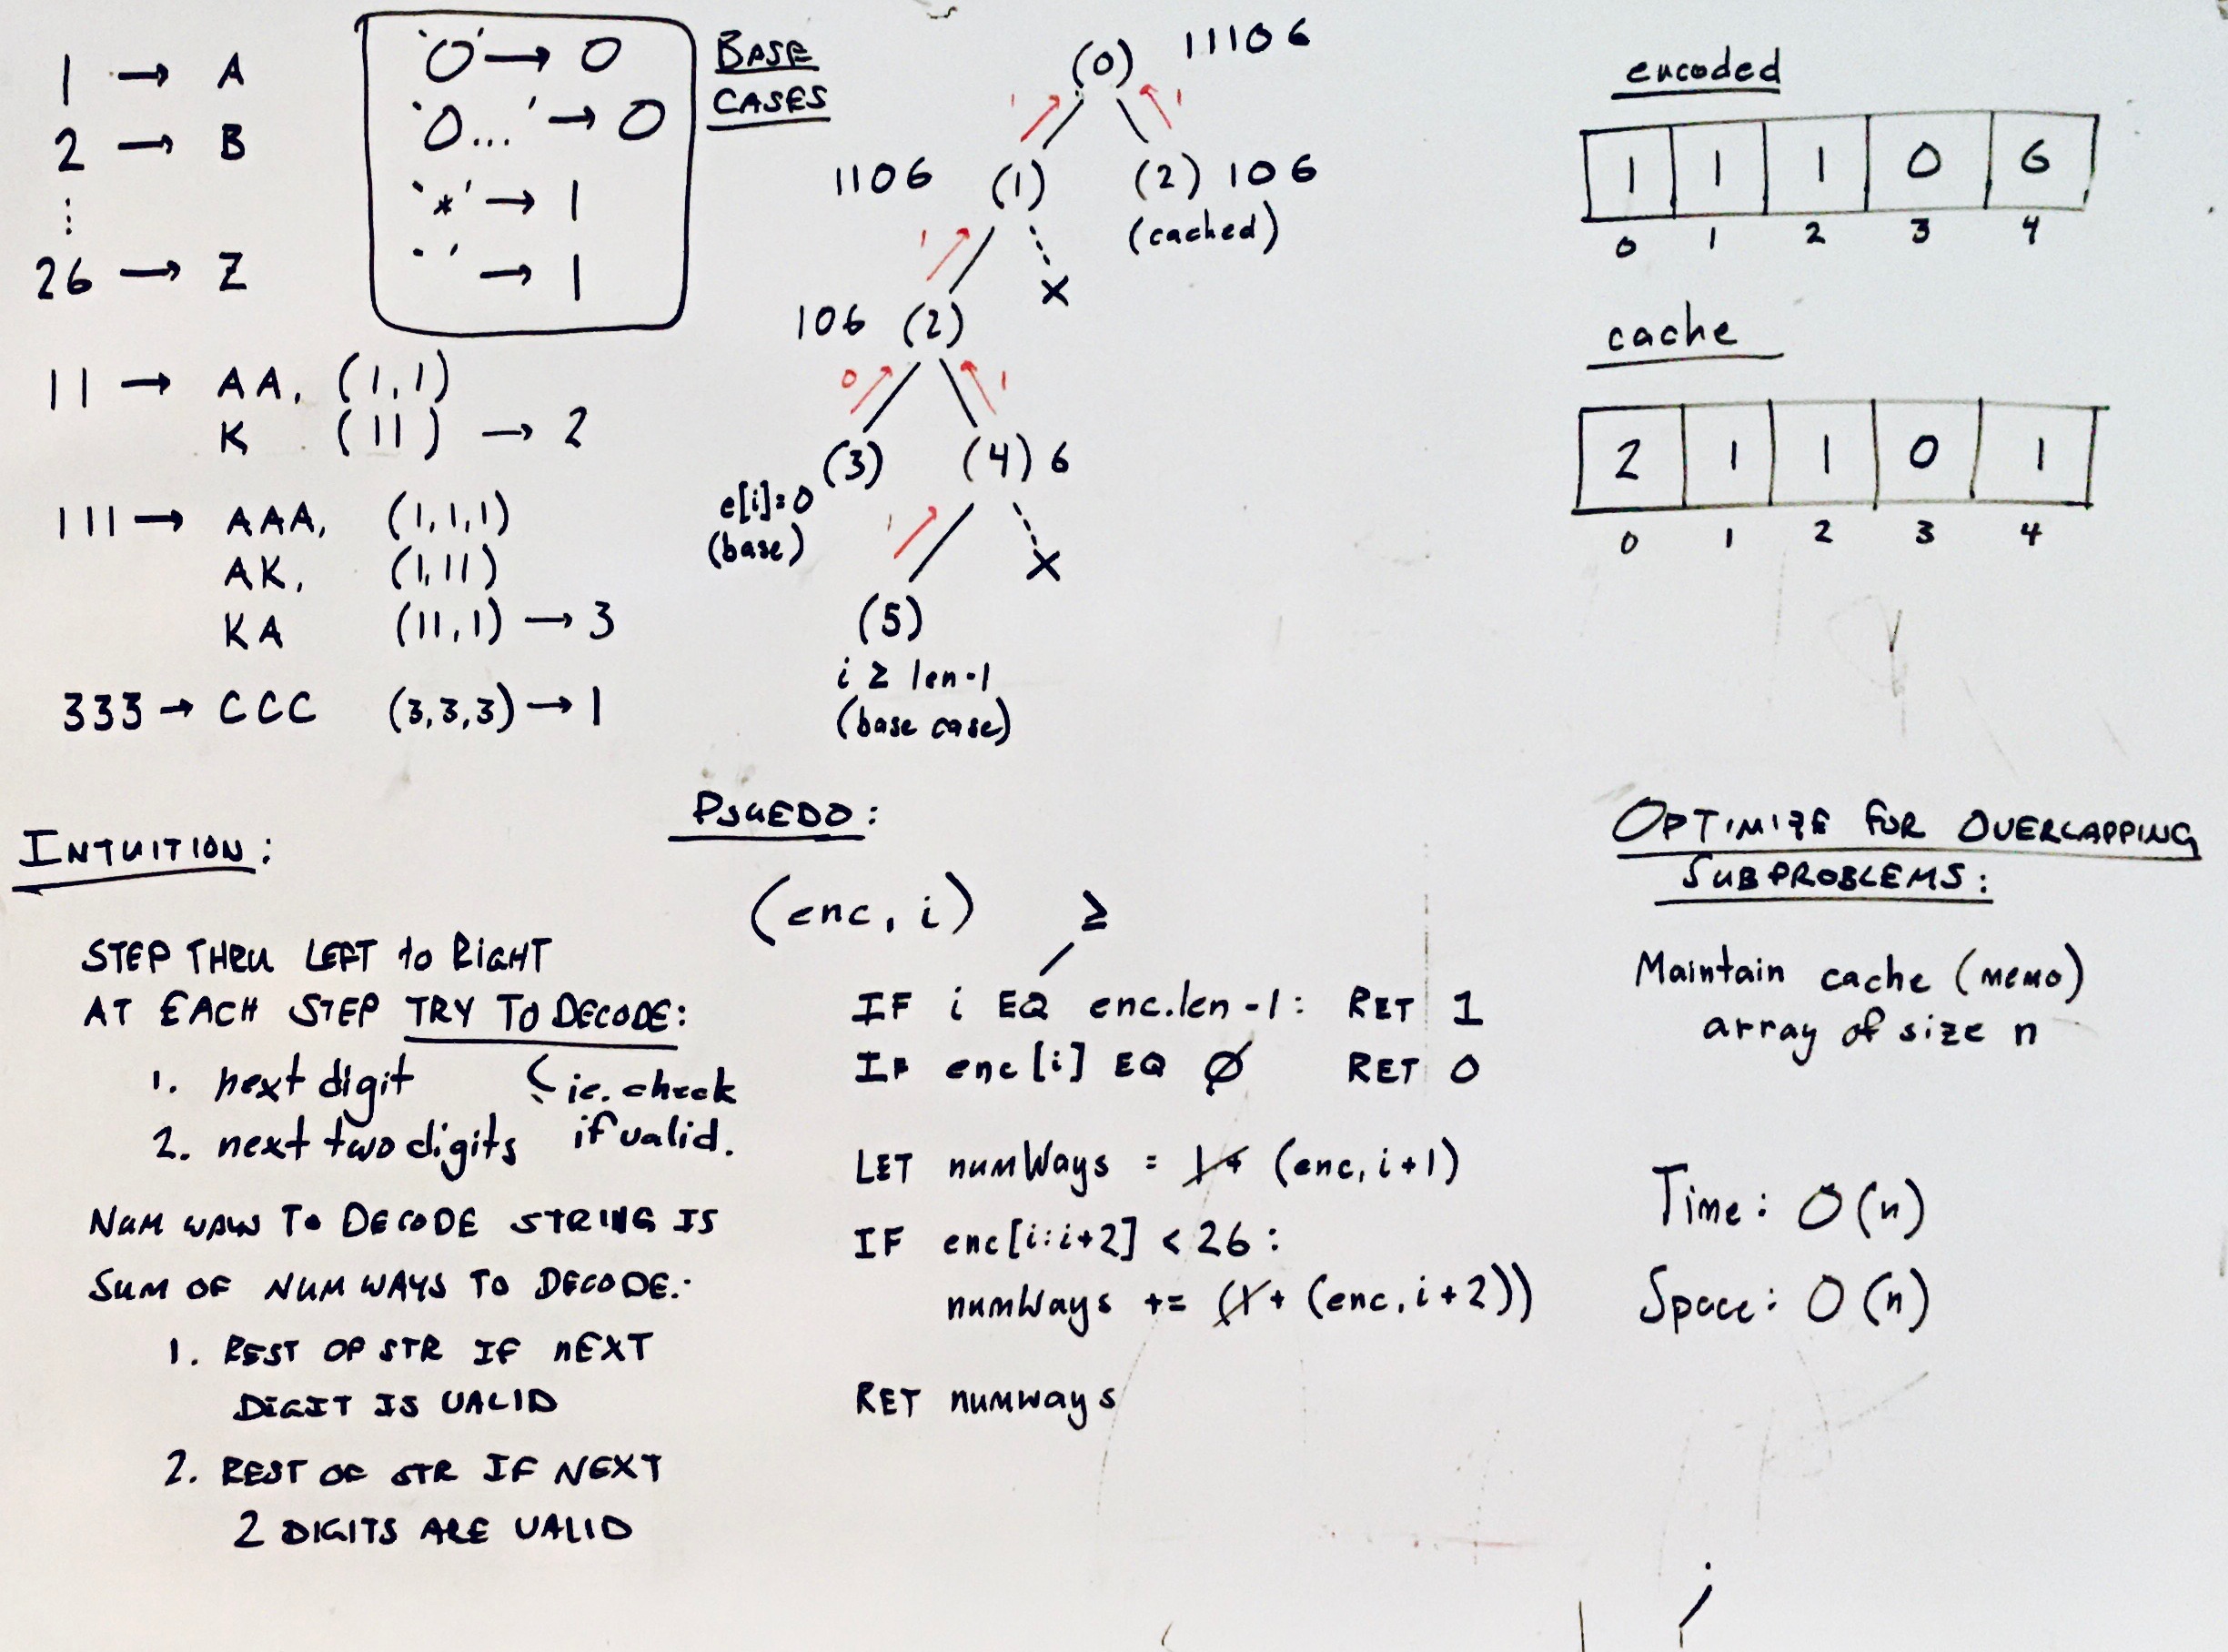 1 → A
2 → B
⋮
26 → Z
'0' → 0
'0...' → 0
'*' → 1
' ' → 1
BASE
CASES
11 → AA, (1,1)
K (11) → 2
111 → AAA, (1,1,1)
AK, (1,11)
KA (11,1) → 3
333 → CCC (3,3,3) → 1
(0) 11106
1 1
1106 (1) (2) 106
(cached)
1
X
106 (2)
0 1
(3) (4) 6
e[i]=0
(base)
1
X
(5)
i ≥ len-1
(base case)
encoded
1 1 1 0 6
0 1 2 3 4
cache
2 1 1 0 1
0 1 2 3 4
INTUITION:
STEP THRU LEFT to RIGHT
AT EACH STEP TRY TO DECODE:
1. next digit (ie. check
2. next two digits if valid.
NUM WAYS TO DECODE STRING IS
SUM OF NUM WAYS TO DECODE:
1. REST OF STR IF NEXT
DIGIT IS VALID
2. REST OF STR IF NEXT
2 DIGITS ARE VALID
PSUEDO:
(enc, i) ≥
IF i EQ enc.len -1: RET 1
IF enc[i] EQ Ø RET 0
LET numWays = 1+ (enc, i+1)
IF enc[i:i+2] < 26:
numWays += (1+ (enc, i+2))
RET numways
OPTIMIZE FOR OVERLAPPING
SUBPROBLEMS:
Maintain cache (MEMO)
array of size n
Time: O(n)
Space: O(n)